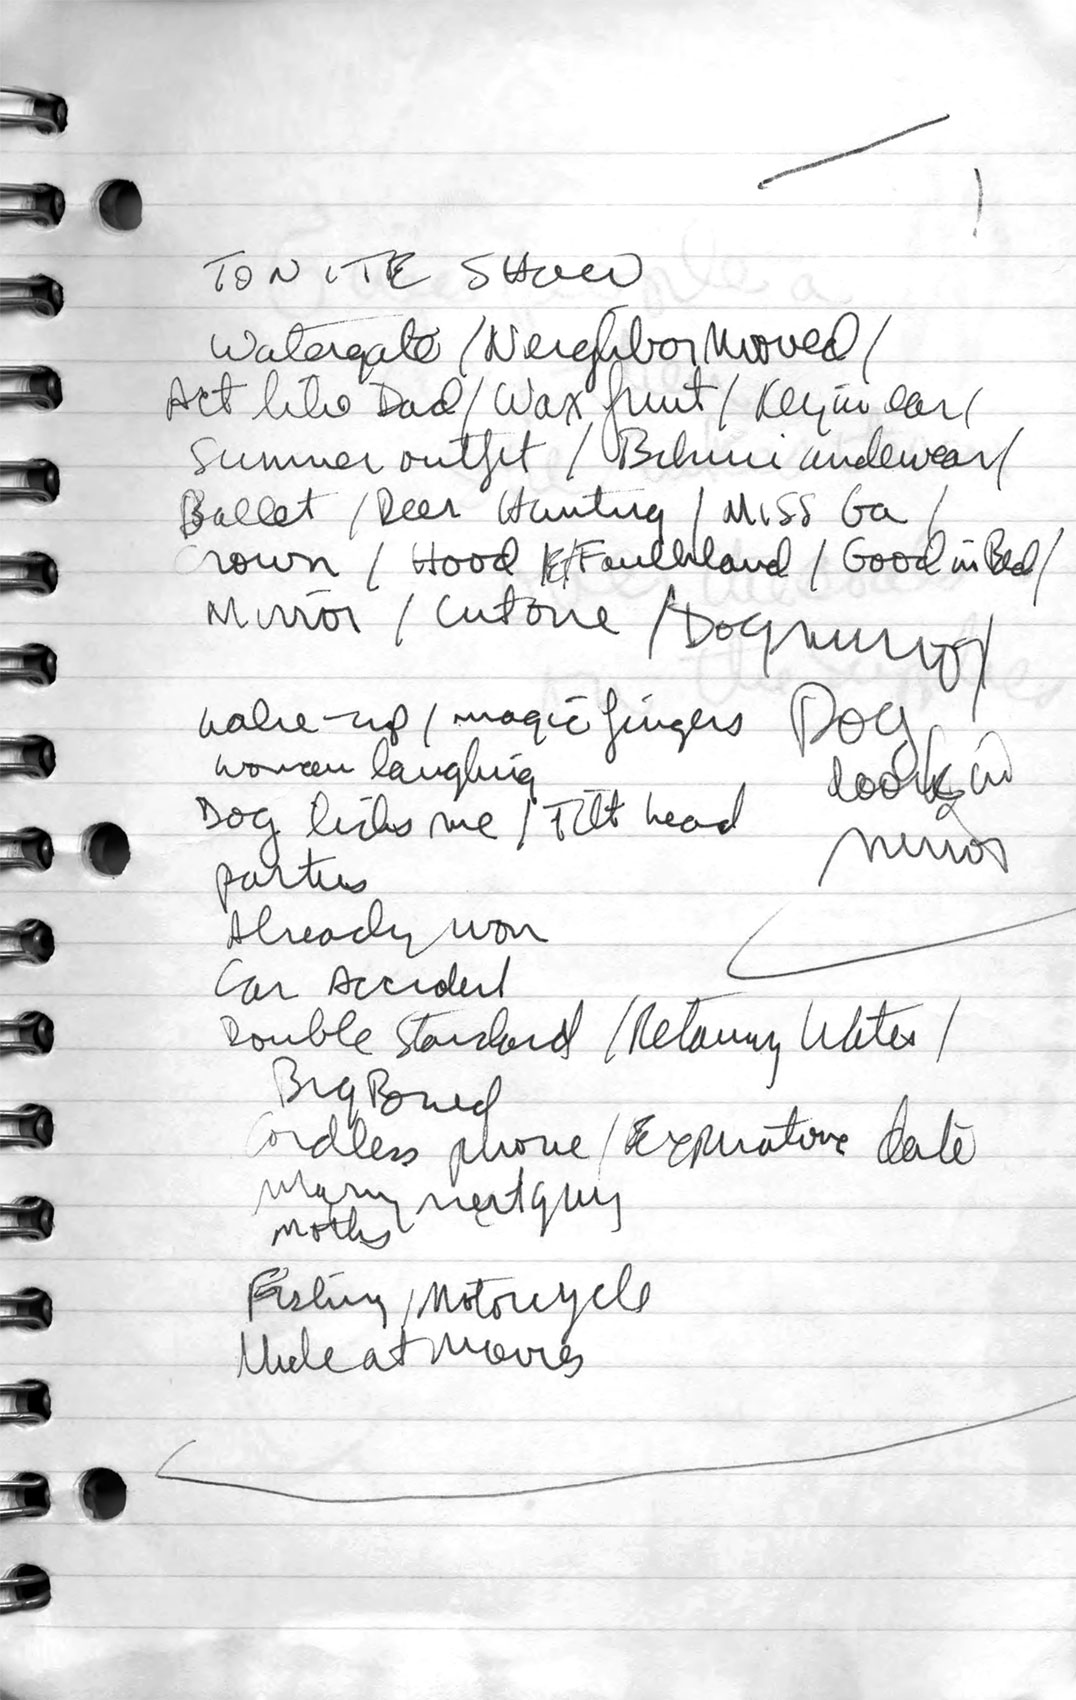 TONITE SHOW
Watergate / Neighbor Moved /
Act like Dad / Wax fruit / Key in ear /
Summer outfit / Bikini underwear /
Ballet / Deer Hunting / Miss Ga /
Crown / Hood / Faulkland / Good in Bed /
Mirror / Cut one / Dog mirror /
wake-up / magic fingers
Dog
woman laughing
look in
Dog licks me / Tilt head
mirror
parties
Already won
Car Accident
Double Standard / Retaining Water /
Big Boned
Cordless phone / Expiration date
Marry next guy
Moths
Fishing / Motorcycle
at Movies